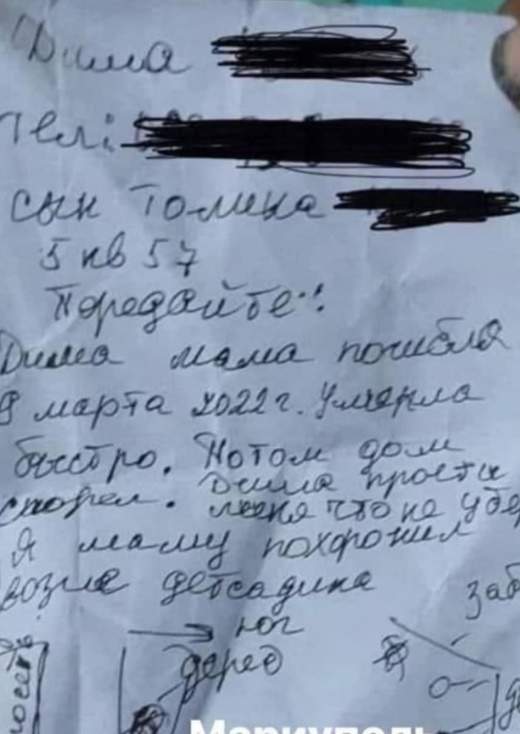 Дима
Тел:
сын Толика
5 кв 57
Передайте!
Дима мама погибла
9 марта 2022г. Умерла
быстро. Потом дом
сгорел. Дима прости
меня что не убер
Я маму похоронил
возле детсадика
юг
дерев
заб
Мариуполь